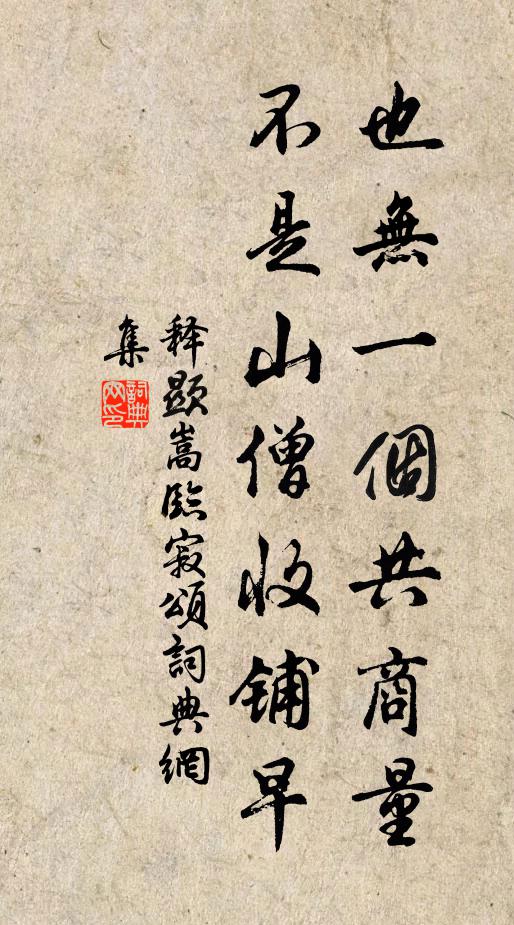 也無一個共商量
不是山僧收铺早
释顯嵩臨寂頌詞典網
集
詞典
网印